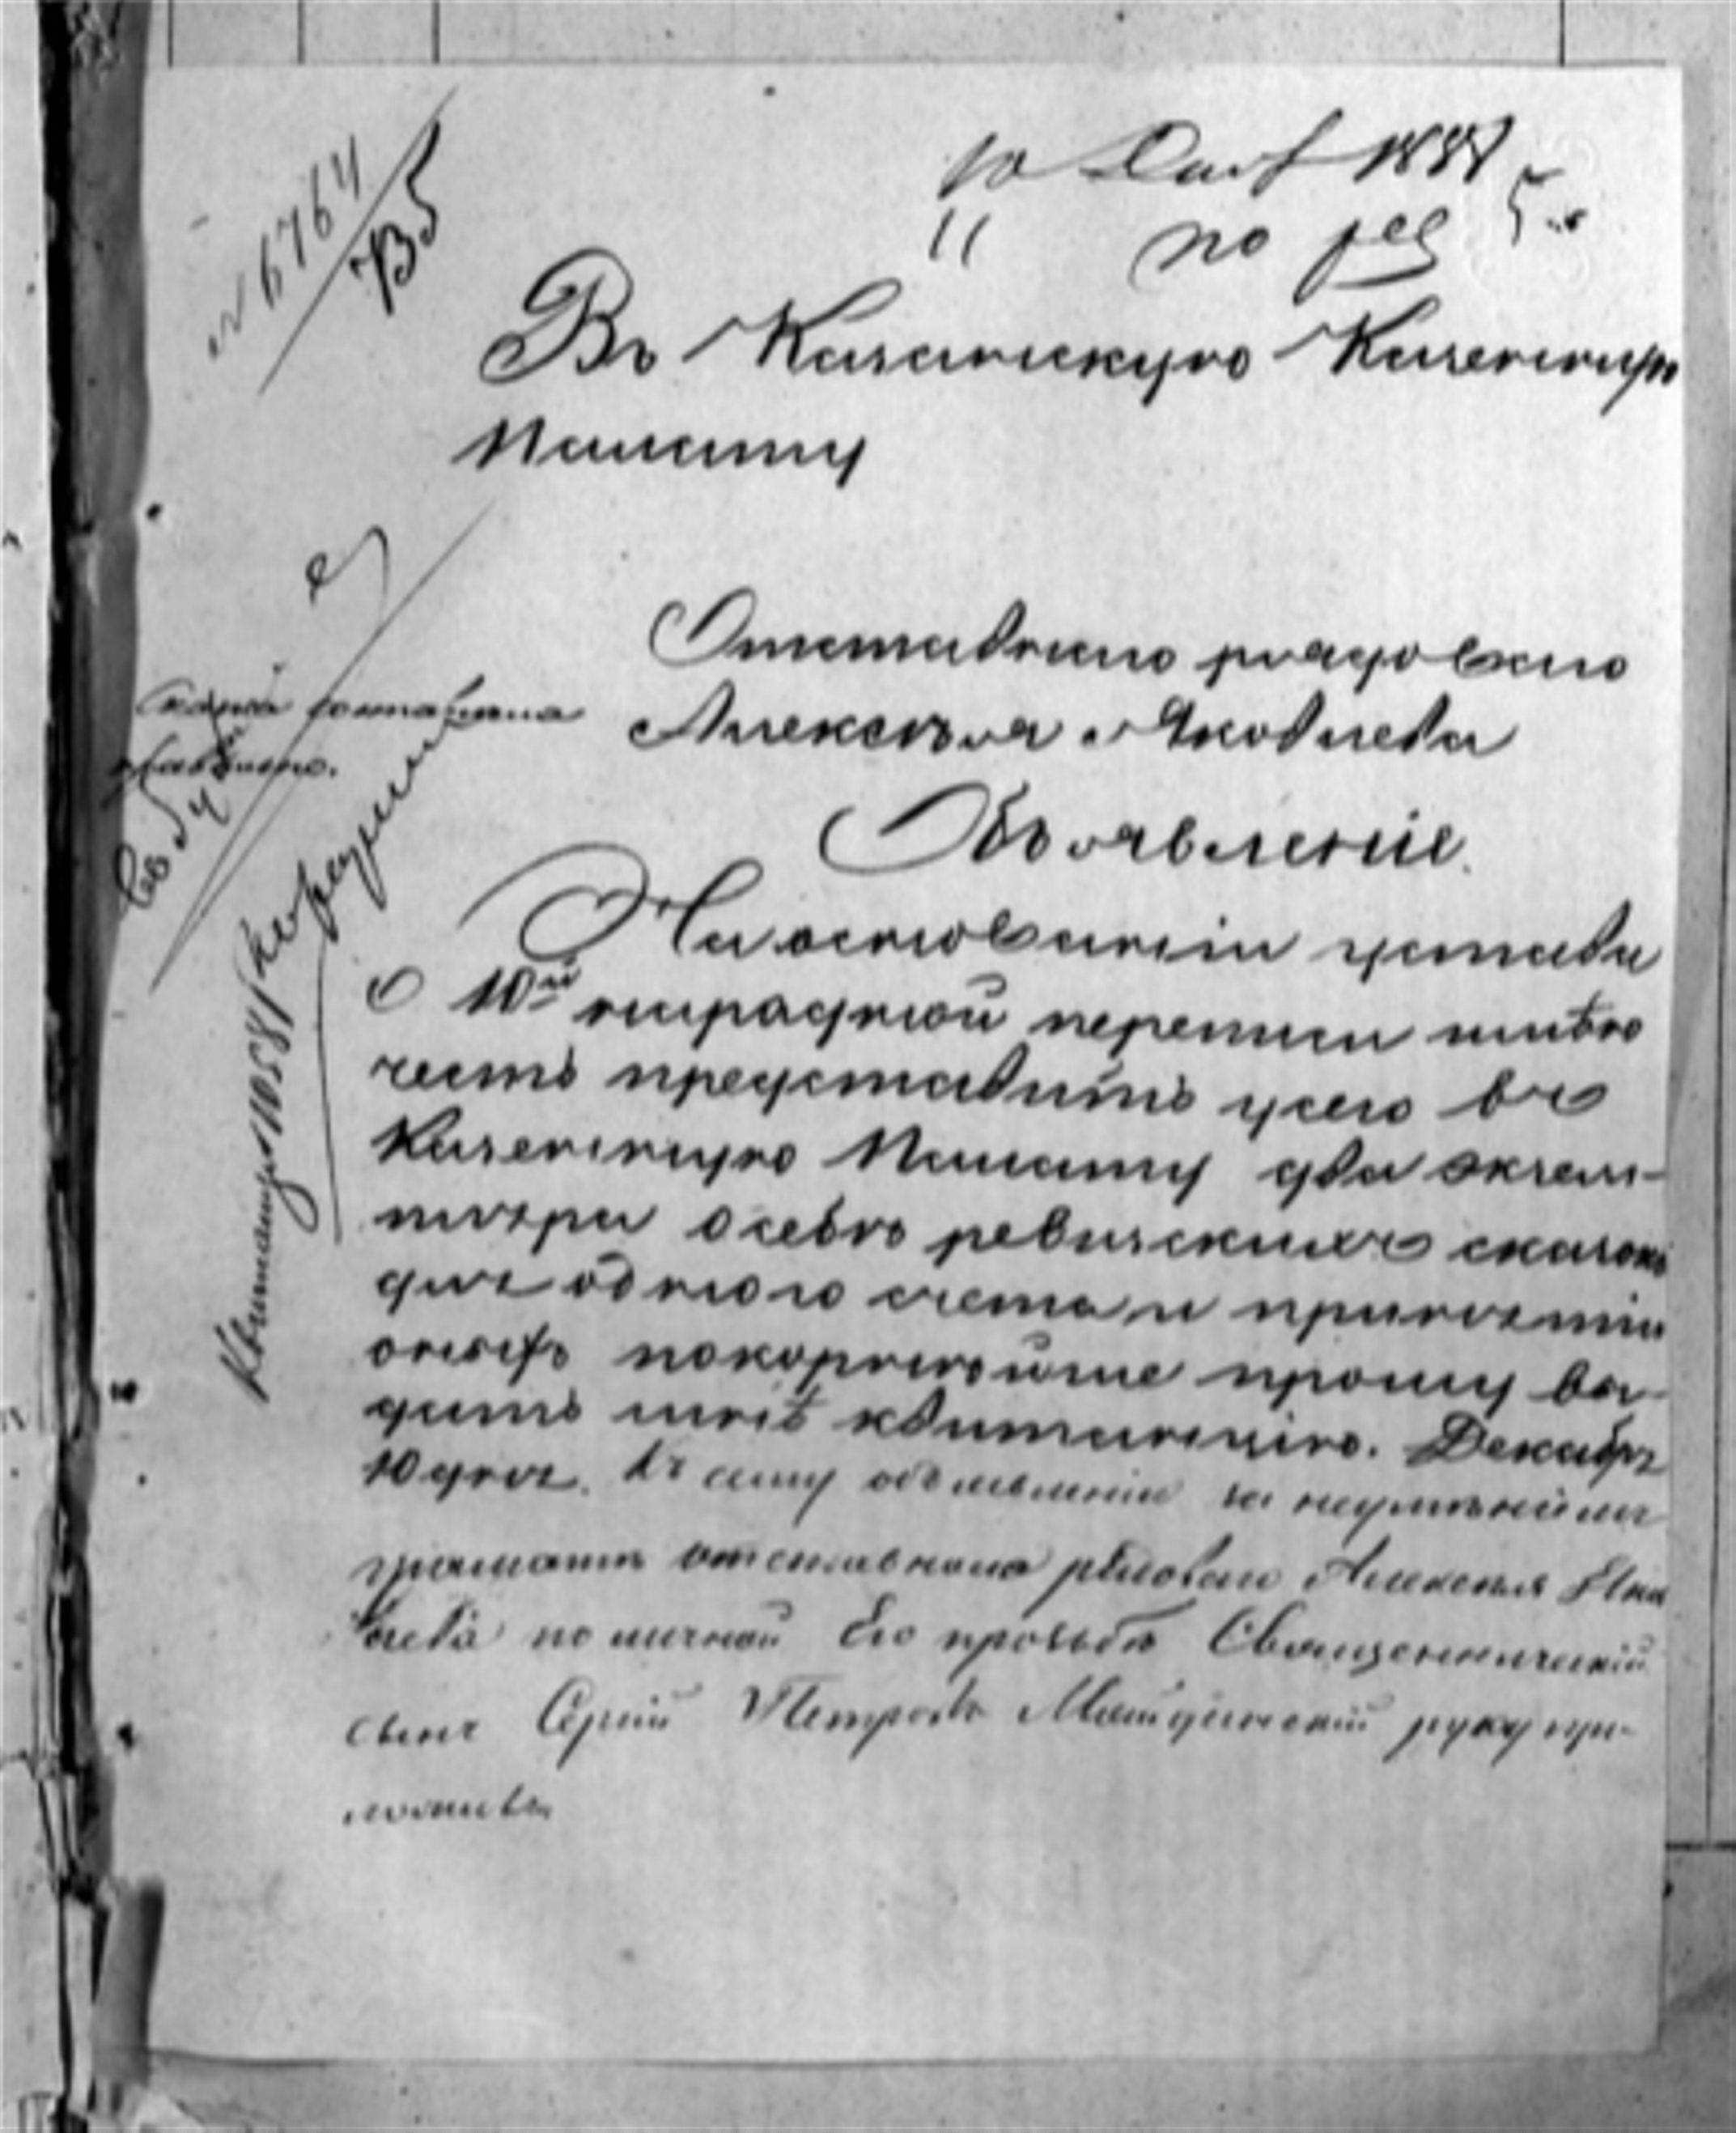 № 6764
В5
10 Дек 1858
11 по рев 5
Въ Казанскую Казенную
Палату
Отставнаго рядоваго
Алексѣя Яковлева
Объявленіе.
На основаніи устава
о 10й народной переписи имѣю
честь представить усего въ
Казенную Палату два экзем-
пляра о себѣ ревизскихъ сказокъ
для одного счета и принятіи
оныхъ покорнѣйше прошу вы-
дать мнѣ квитанцію. Декабря
10 дня. Къ сему объявленію за неумѣніемъ
грамоты отставнаго рядоваго Алексѣя Яко
влева по личной Его просьбѣ Священническій
сынъ Сергій Петровъ руку при-
ложилъ
Сказка составлена
правильно.
Квитанція 11058